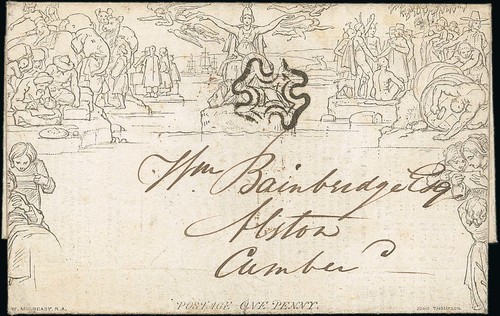 Wm Bainbridge Esq
Alston
Cumberd
POSTAGE ONE PENNY.
W. MULREADY, R.A.
JOHN THOMPSON